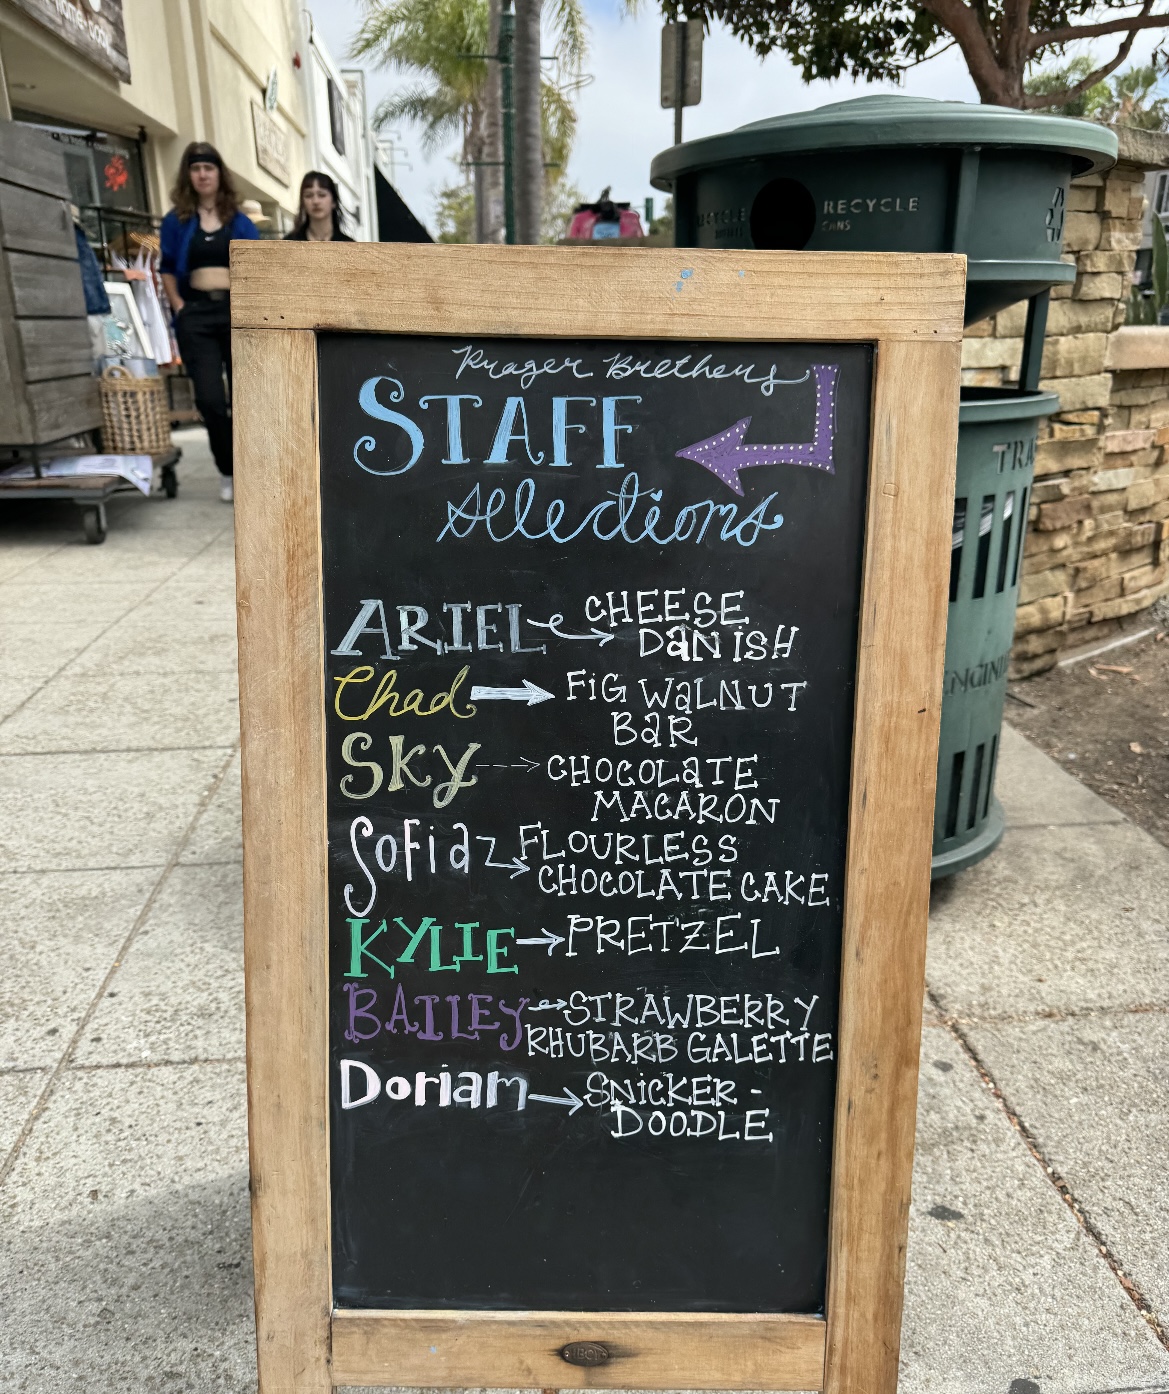 RECYCLE
CANS
Prager Brothers
STAFF
selections
ARIEL CHEESE
DANISH
Chad FIG WALNUT
BAR
SKY CHOCOLATE
MACARON
Sofia FLOURLESS
CHOCOLATE CAKE
KYLIE PRETZEL
BAILEY STRAWBERRY
RHUBARB GALETTE
Dorian SNICKER-
DOODLE